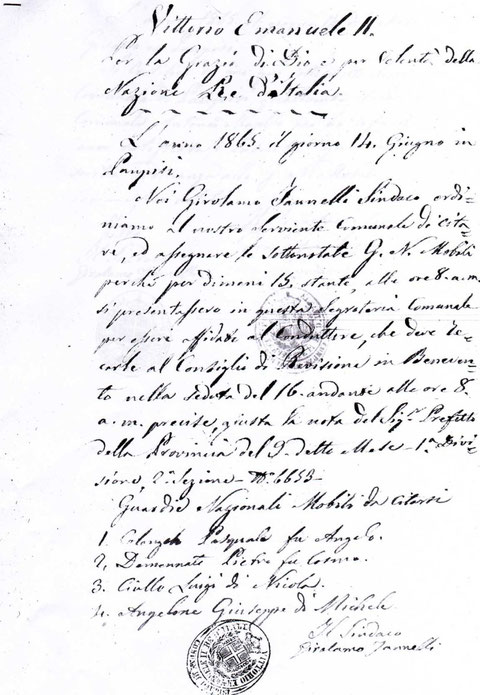 Vittorio Emanuele II.
Per la Grazia di Dio, e per Volontà della
Nazione Re d'Italia.
L'anno 1865 il giorno 14 Giugno in
Paupisi.
Noi Girolamo Jannelli Sindaco ordi-
niamo al nostro serviente Comunale di Cita-
re, ed assegnare le sottonotate G. N. Mobili
perchè per dimani 15 stante, alle ore 8. a.m.
si presentassero in questa Segreteria Comunale
per essere affidati al Conduttore, che deve re-
carle al Consiglio di Revisione in Beneven-
to nella seduta del 16 andante alle ore 8.
a.m. precise, giusta la nota del Sig.r Prefetto
della Provincia del 9 detto Mese - 1.a Divi-
sione, 2.a Sezione - N.o 6653 -
Guardie Nazionali Mobili da Citarsi
1. Pasquale fu Angelo.
2. Pietro fu Cosmo.
3. Ciullo Luigi di Nicola.
4. Angelone Giuseppe di Michele
Il Sindaco
Girolamo Jannelli